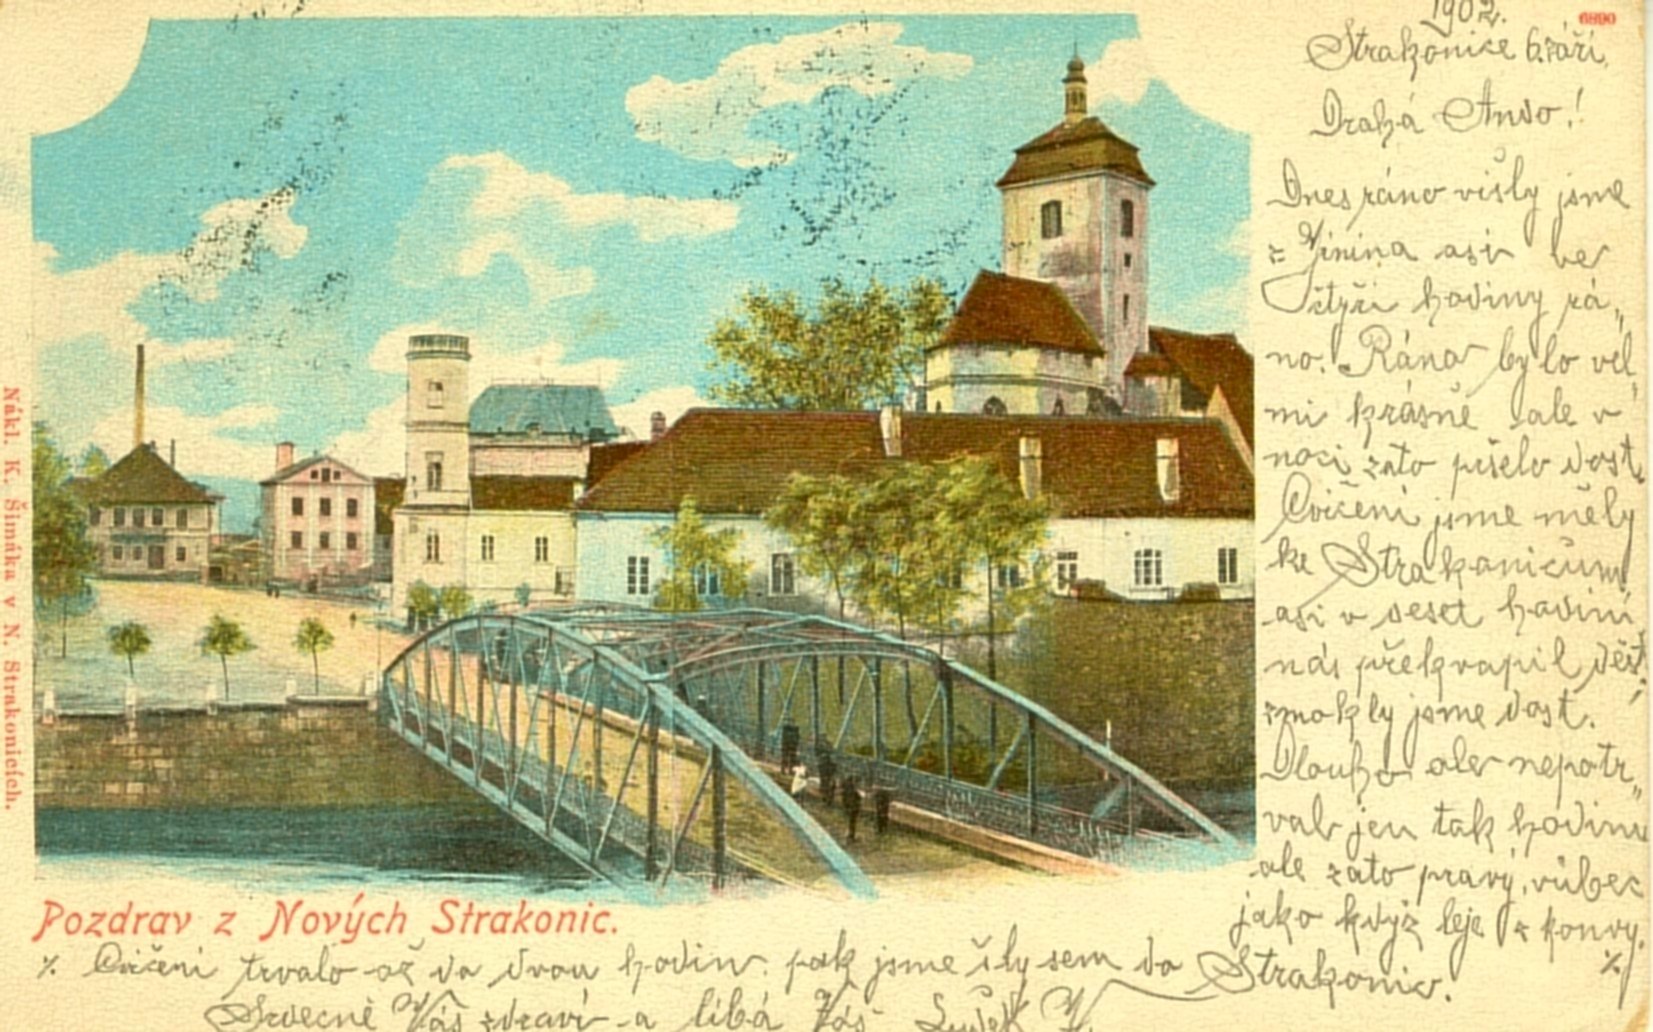 6890
1902.
Strakonice 6. září.
Drahá Anso!
Dnes ráno višly jsme
z Jinína asi ve
štyři hodiny rá„
no. Ráno bylo vel„
mi krásně ale v
noci zato pršelo dost.
Cvičení jsme měly
ke Strakonicům
asi v deset hodin
nás překvapil déšť
zmokly jsme dost.
Dlouho ale nepotr„
val jen tak hodinu
ale zato pravý, vůbec
jako když leje z konvy.
%
Nákl. K. Šimáka v N. Strakonicích.
Pozdrav z Nových Strakonic.
% Cvičení trvalo až do dvou hodin. pak jsme šly sem do Strakonic.
Srdečně Vás zdraví a líbá Váš